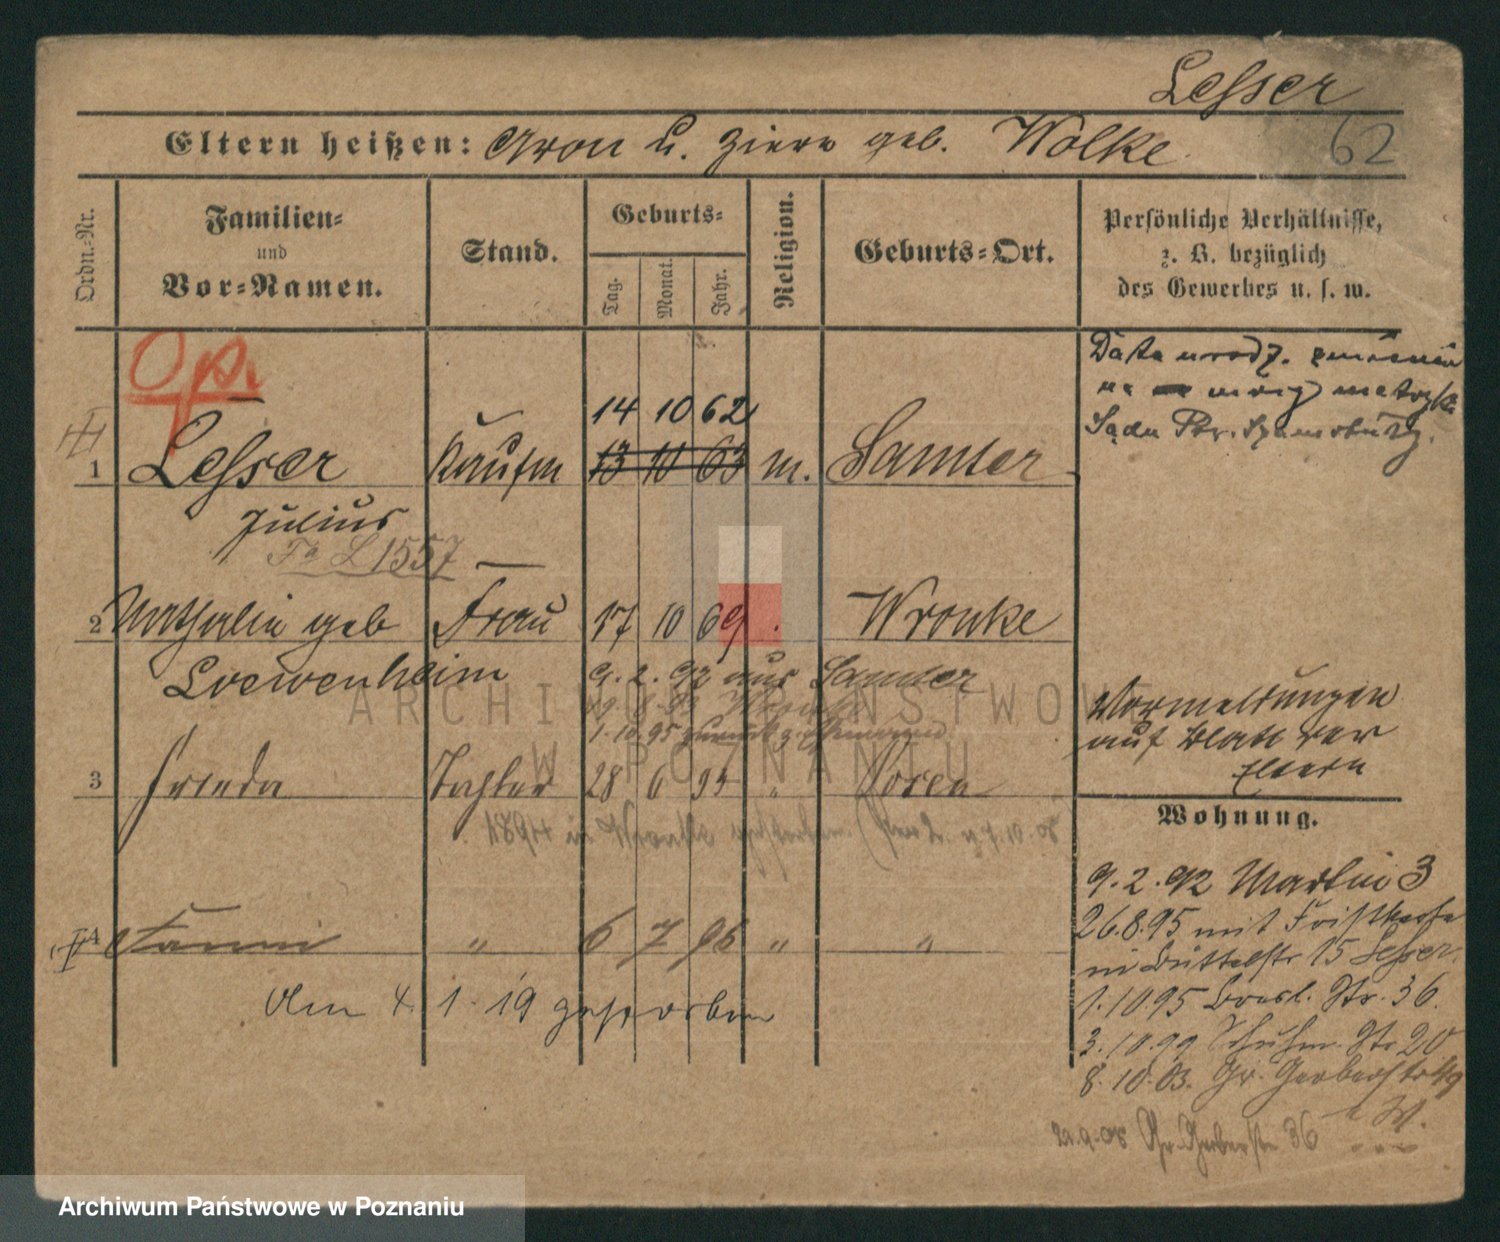 Lesser
62
Eltern heißen: Aron u. Ziere geb. Wolke
Ordn.-Nr.
Familien-
und
Vor-Namen.
Stand.
Geburts-
Tag.
Monat.
Jahr.
Religion.
Geburts-Ort.
Persönliche Verhältnisse,
z. B. bezüglich
des Gewerbes u. s. w.
Op.
Data urodz.
na metryki
Sądu
14 10 62
1 Lesser Kaufm 13 10 63 m. Samter
Julius
L 1557
2 Nathalie geb Frau 17 10 69 Wronke
Loewenheim
9. 2. 92 aus Samter
1.10.95 zurück
Vormeldungen
auf Blatt der
Eltern
3 Frieda Tochter 28 6 94 " Posen
Wohnung.
9. 2. 92 Martin 3
26.8.95 mit
in Büttelstr 15 Lesser.
4 Fanni " 6 7 96 " "
Am 4. 1. 19 gestorben
1.10.95 Bresl. Str. 36.
3.10.99 Schuhm. Str 20
8.10.03. Gr. Gerberstr
Gr. Gerberstr 36
W.
ARCHIWUM PAŃSTWOWE
W POZNANIU
Archiwum Państwowe w Poznaniu